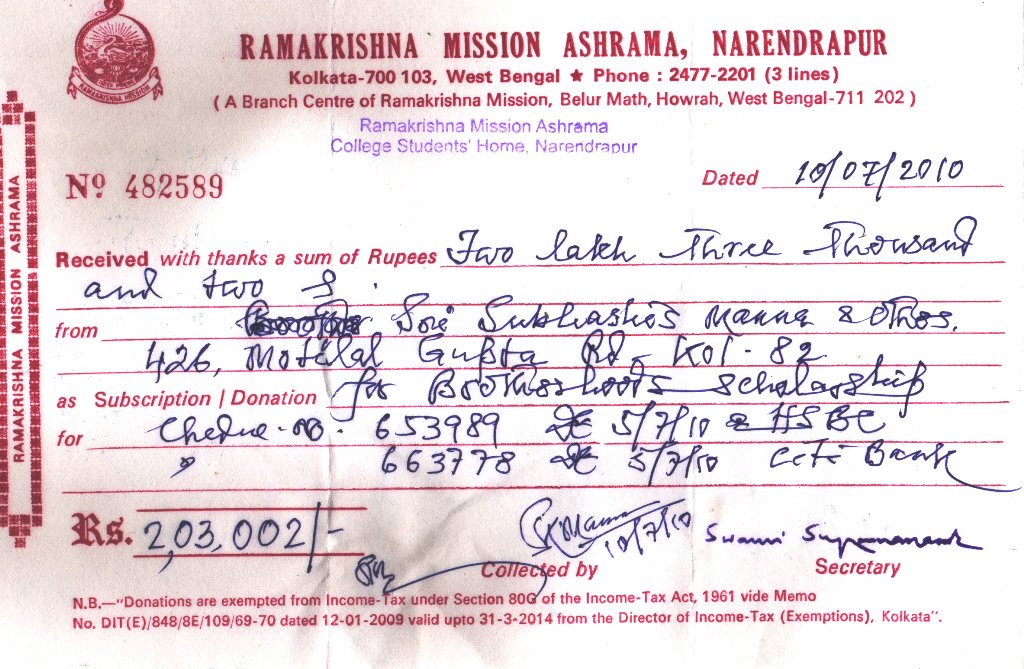 RAMAKRISHNA MISSION
RAMAKRISHNA MISSION ASHRAMA, NARENDRAPUR
Kolkata-700 103, West Bengal ★ Phone : 2477-2201 (3 lines)
( A Branch Centre of Ramakrishna Mission, Belur Math, Howrah, West Bengal-711 202 )
Ramakrishna Mission Ashrama
College Students' Home, Narendrapur
RAMAKRISHNA MISSION ASHRAMA
Nº 482589
Dated 10/07/2010
Received with thanks a sum of Rupees Two lakh Three Thousand
and two
from Sri Subhashis Manna & Others.
426, Motilal Gupta Rd, Kol-82
as Subscription / Donation for Brotherhoods scholarship
for Cheque No. 653989 Dt 5/7/10 HSBC
" 663778 Dt 5/7/10 Citi Bank
Rs. 2,03,002/-
SKManna 10/7/10
Swami
Collected by
Secretary
N.B.—"Donations are exempted from Income-Tax under Section 80G of the Income-Tax Act, 1961 vide Memo
No. DIT(E)/848/8E/109/69-70 dated 12-01-2009 valid upto 31-3-2014 from the Director of Income-Tax (Exemptions), Kolkata".